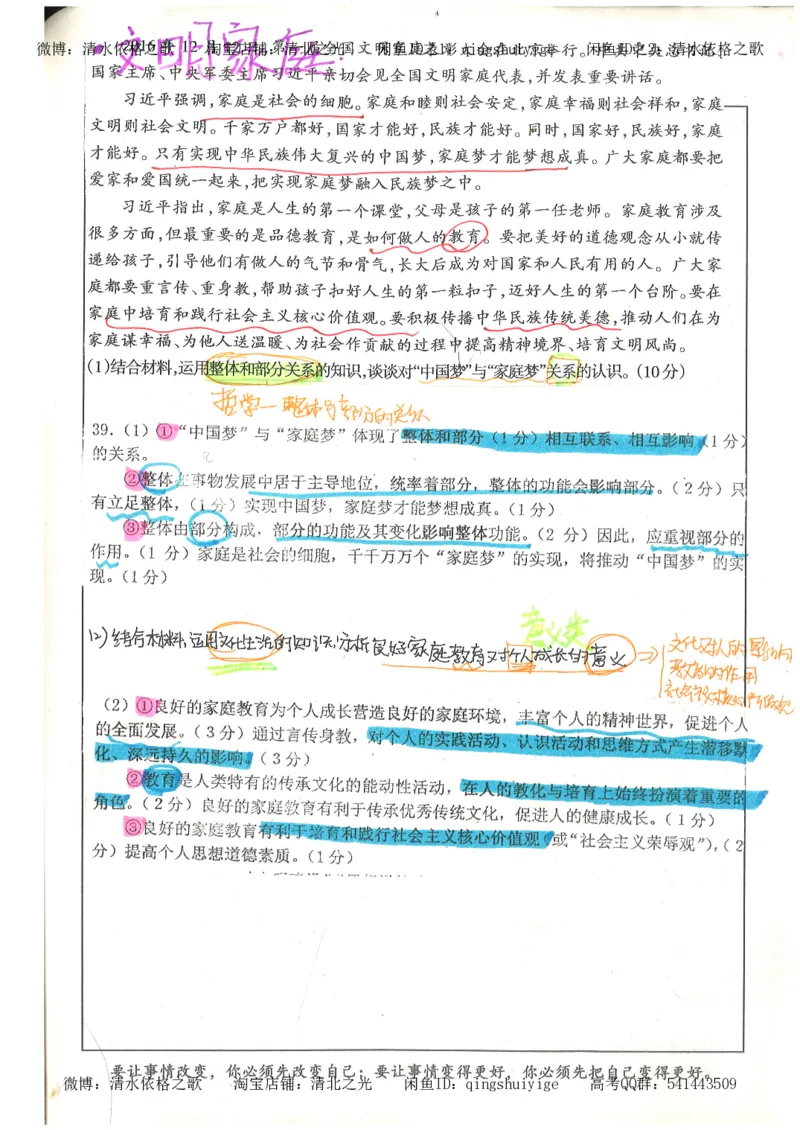 微博：清水依格之歌 淘宝店铺：清北之光 闲鱼ID：qingshuiyige 闲鱼ID2：清水依格之歌
文明家庭
国家主席、中央军委主席习近平亲切会见全国文明家庭代表,并发表重要讲话。
习近平强调,家庭是社会的细胞。家庭和睦则社会安定,家庭幸福则社会祥和,家庭
文明则社会文明。千家万户都好,国家才能好,民族才能好。同时,国家好,民族好,家庭
才能好。只有实现中华民族伟大复兴的中国梦,家庭梦才能梦想成真。广大家庭都要把
爱家和爱国统一起来,把实现家庭梦融入民族梦之中。
习近平指出,家庭是人生的第一个课堂,父母是孩子的第一任老师。家庭教育涉及
很多方面,但最重要的是品德教育,是如何做人的教育。要把美好的道德观念从小就传
递给孩子,引导他们有做人的气节和骨气,长大后成为对国家和人民有用的人。广大家
庭都要重言传、重身教,帮助孩子扣好人生的第一粒扣子,迈好人生的第一个台阶。要在
家庭中培育和践行社会主义核心价值观。要积极传播中华民族传统美德,推动人们在为
家庭谋幸福、为他人送温暖、为社会作贡献的过程中提高精神境界、培育文明风尚。
(1)结合材料,运用整体和部分关系的知识,谈谈对“中国梦”与“家庭梦”关系的认识。(10分)
哲学—整体与部分的关系
39.(1)①“中国梦”与“家庭梦”体现了整体和部分(1分)相互联系、相互影响(1分)
的关系。
②整体在事物发展中居于主导地位，统率着部分，整体的功能会影响部分。(2分)只
有立足整体，(1分)实现中国梦，家庭梦才能梦想成真。(1分)
③整体由部分构成，部分的功能及其变化影响整体功能。(2分)因此，应重视部分的
作用。(1分)家庭是社会的细胞，千千万万个“家庭梦”的实现，将推动“中国梦”的实
现。(1分)
意义类
(2)结合材料,运用文化生活的知识,分析良好家庭教育对个人成长的意义
文化对人的影响
教育的作用
(2)①良好的家庭教育为个人成长营造良好的家庭环境，丰富个人的精神世界，促进个人
的全面发展。(3分)通过言传身教，对个人的实践活动、认识活动和思维方式产生潜移默
化、深远持久的影响。(3分)
②教育是人类特有的传承文化的能动性活动，在人的教化与培育上始终扮演着重要的
角色。(2分)良好的家庭教育有利于传承优秀传统文化，促进人的健康成长。(1分)
③良好的家庭教育有利于培育和践行社会主义核心价值观(或“社会主义荣辱观”),(2
分)提高个人思想道德素质。(1分)
要让事情改变，你必须先改变自己；要让事情变得更好，你必须先把自己变得更好。
微博：清水依格之歌 淘宝店铺：清北之光 闲鱼ID：qingshuiyige 高考QQ群：541443509